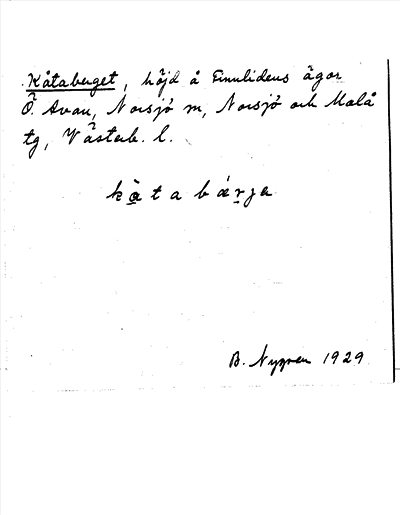 Kåtaberget, höjd å Finnlidens ägor
Ö. Avan, Norsjö sn, Norsjö och Malå
tg, Västerb. l.
kåtabärja
B. Nygren 1929